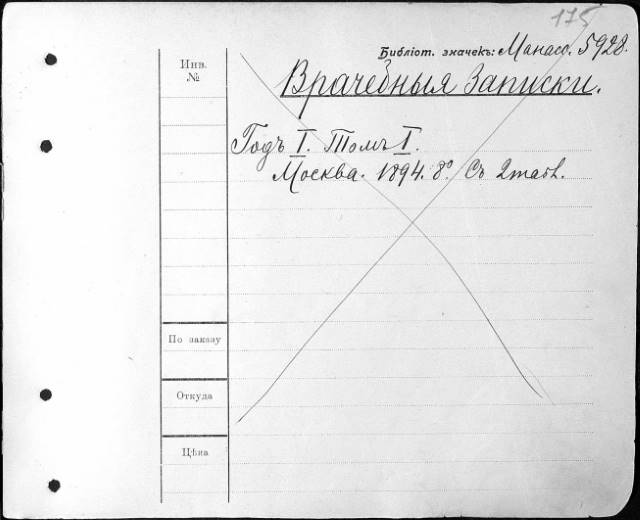 175
Библіот. значекъ: Манасс. 5928.
Инв. №
Врачебныя Записки.
Годъ I. Томъ I.
Москва. 1894. 8º. Съ 2 табл.
По заказу
Откуда
Цѣна